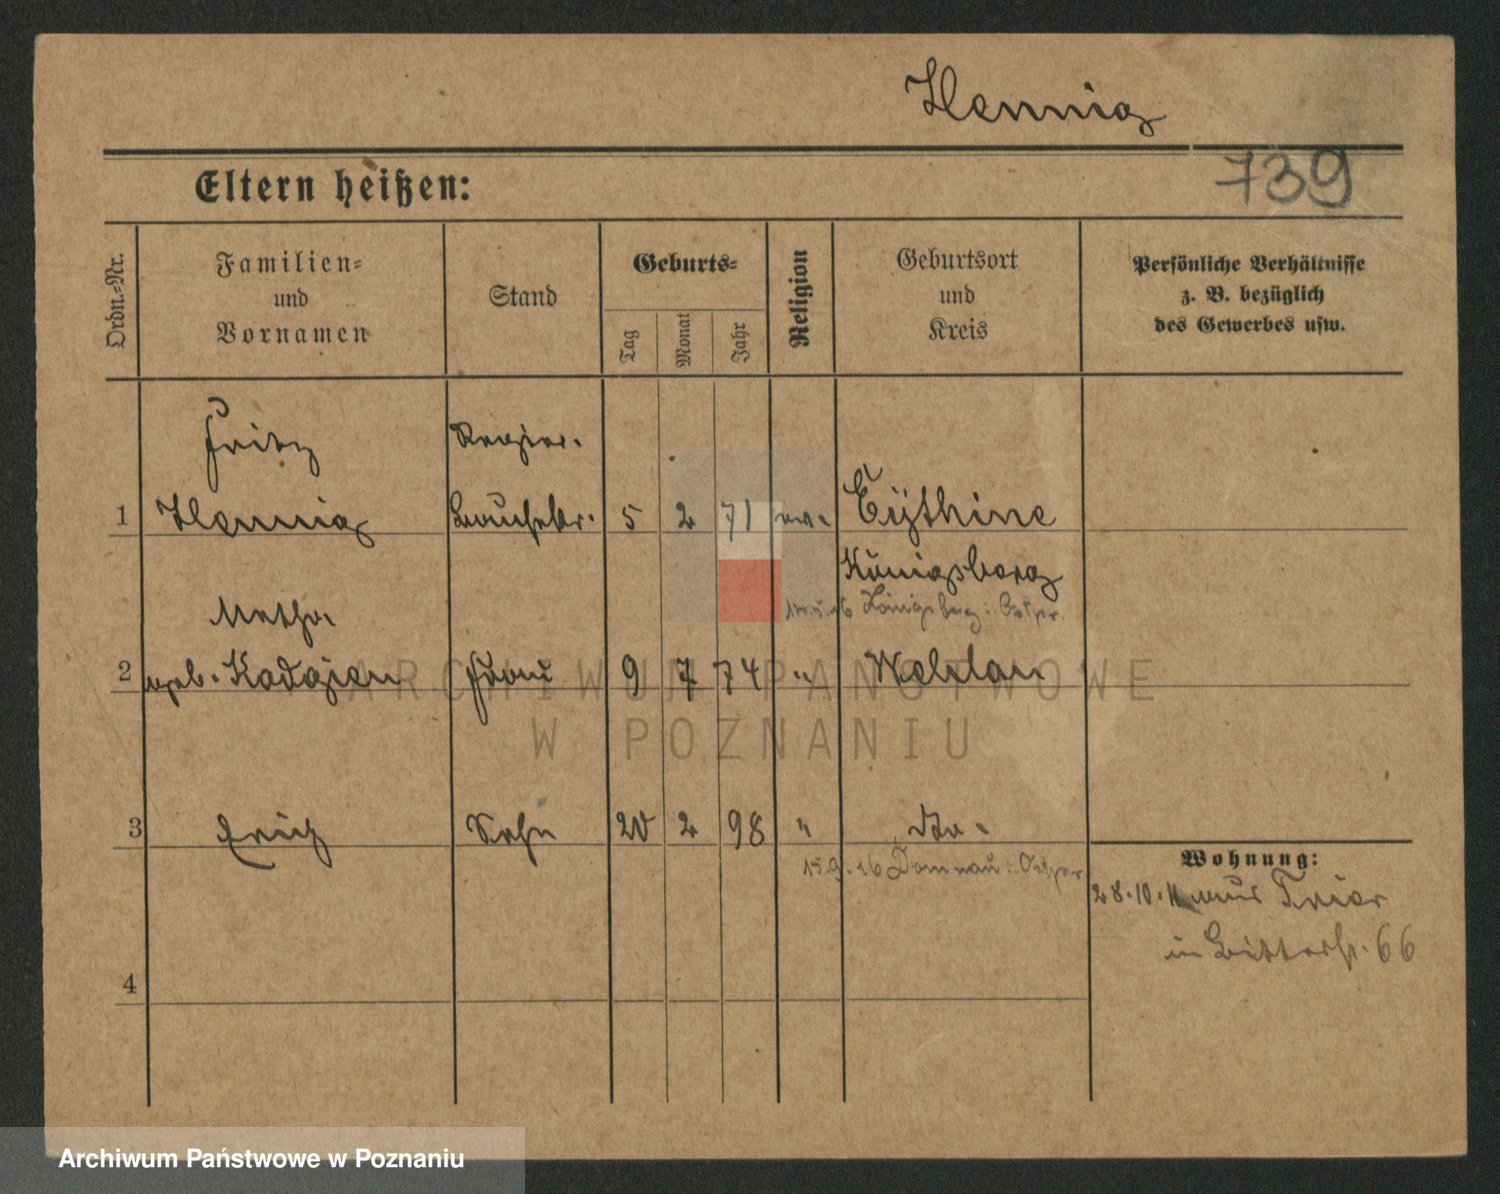 Hennig
739
Eltern heißen:
Ordn.-Nr.
Familien-
und
Vornamen
Stand
Geburts-
Tag
Monat
Jahr
Religion
Geburtsort
und
Kreis
Persönliche Verhältnisse
z. B. bezüglich
des Gewerbes usw.
Fritz
Regier.
1 Hennig 5 2 71 ev. Eythine
Königsberg
Königsberg i. Ostpr.
2 geb. Kadgien Frau 9 7 74 " Wehlau
ARCHIWUM PAŃSTWOWE
W POZNANIU
3 Erich Sohn 20 2 98 " dto.
15.9.16 Domnau i. Ostpr
Wohnung:
28.10.11 aus Trier
in Bitterstr. 66
4
Archiwum Państwowe w Poznaniu